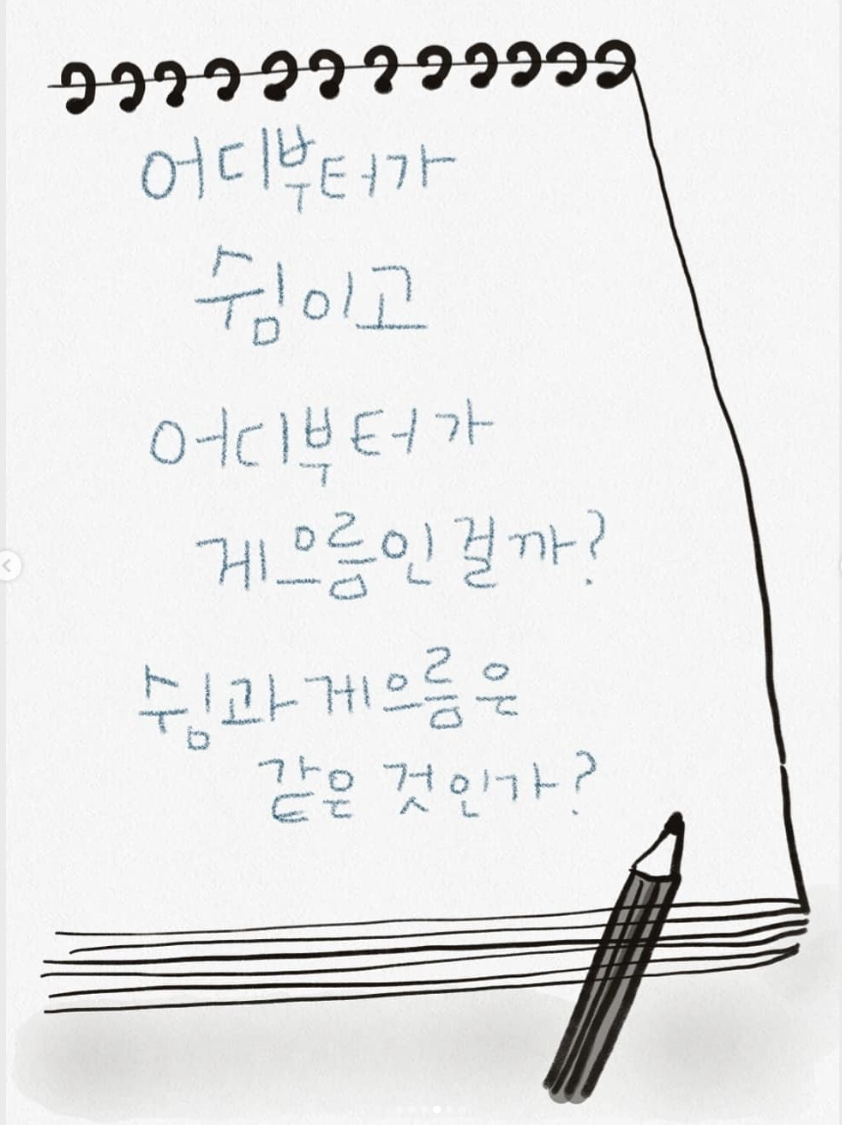 어디부터가
쉼이고
어디부터가
게으름인걸까?
쉼과 게으름은
같은 것인가?